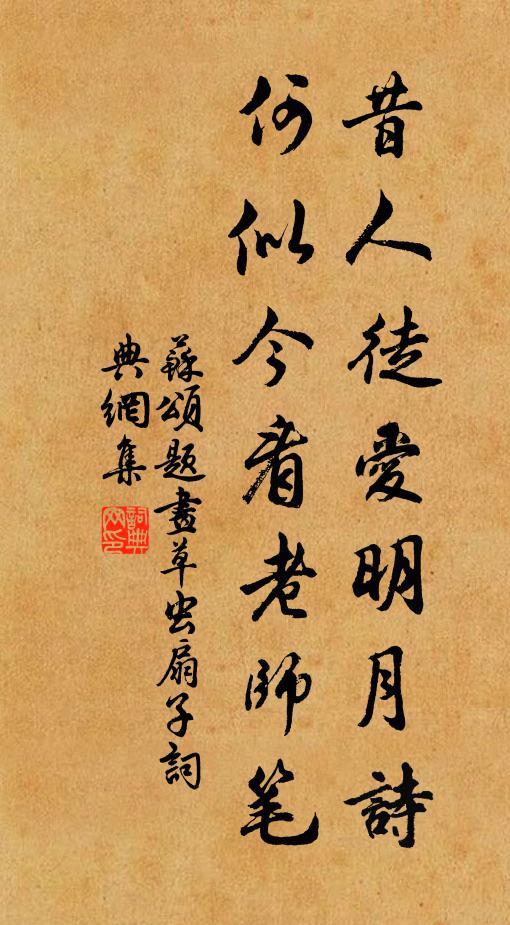 昔人徒愛明月詩
何似今看老師笔
蘇頌題畫草虫扇子詞
典網集
詞典网印